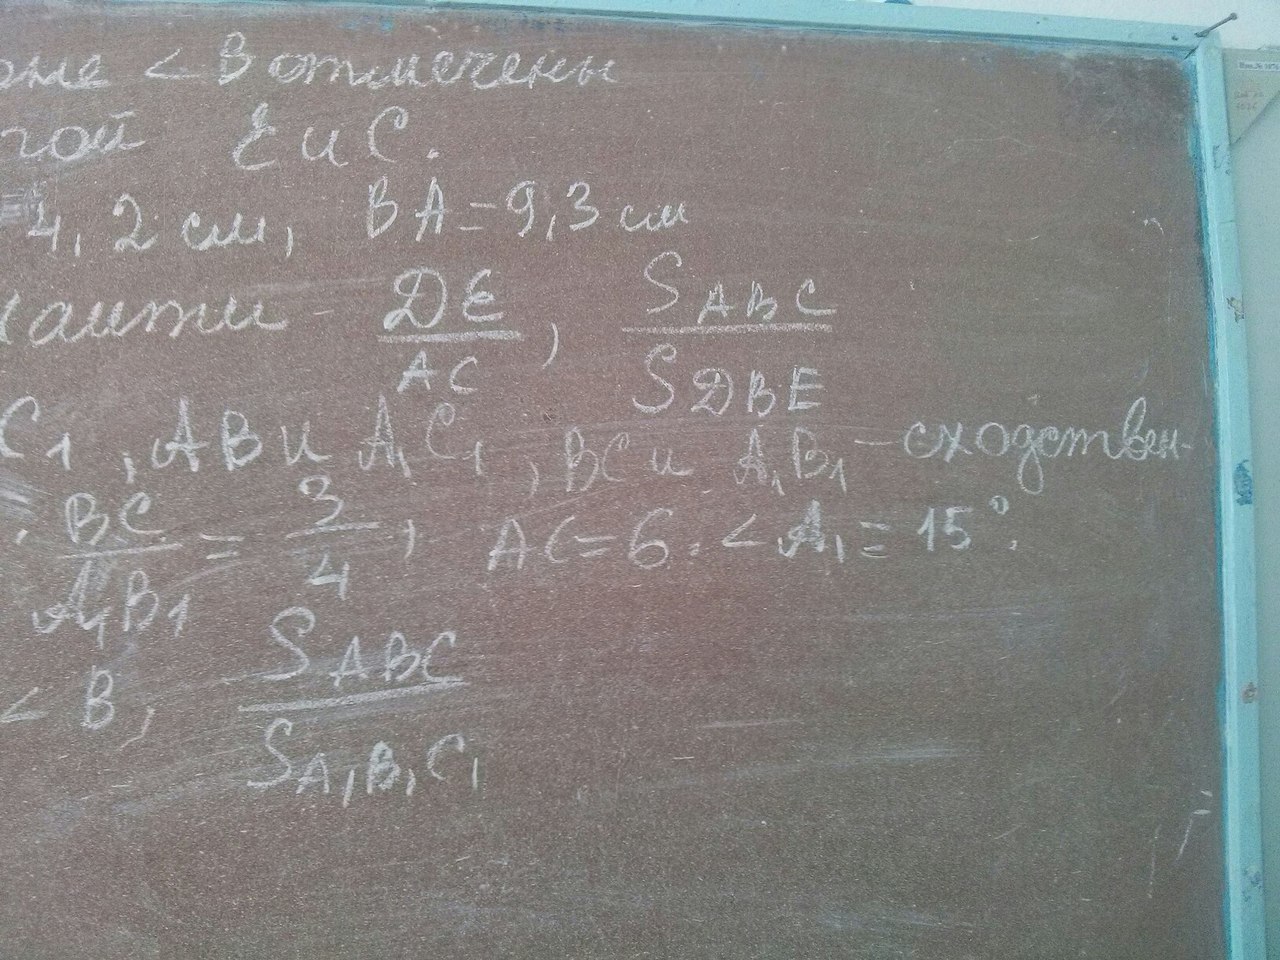 оне < B отмечены
гой E и C.
= 4,2 см, BA = 9,3 см
найти - DE/AC, S ABC/S DBE
C₁, AB и A₁C₁, BC и A₁B₁ - сходствен-
. BC/A₁B₁ = 3/4, AC = 6. < A₁ = 15°.
< B, S ABC/S A₁B₁C₁